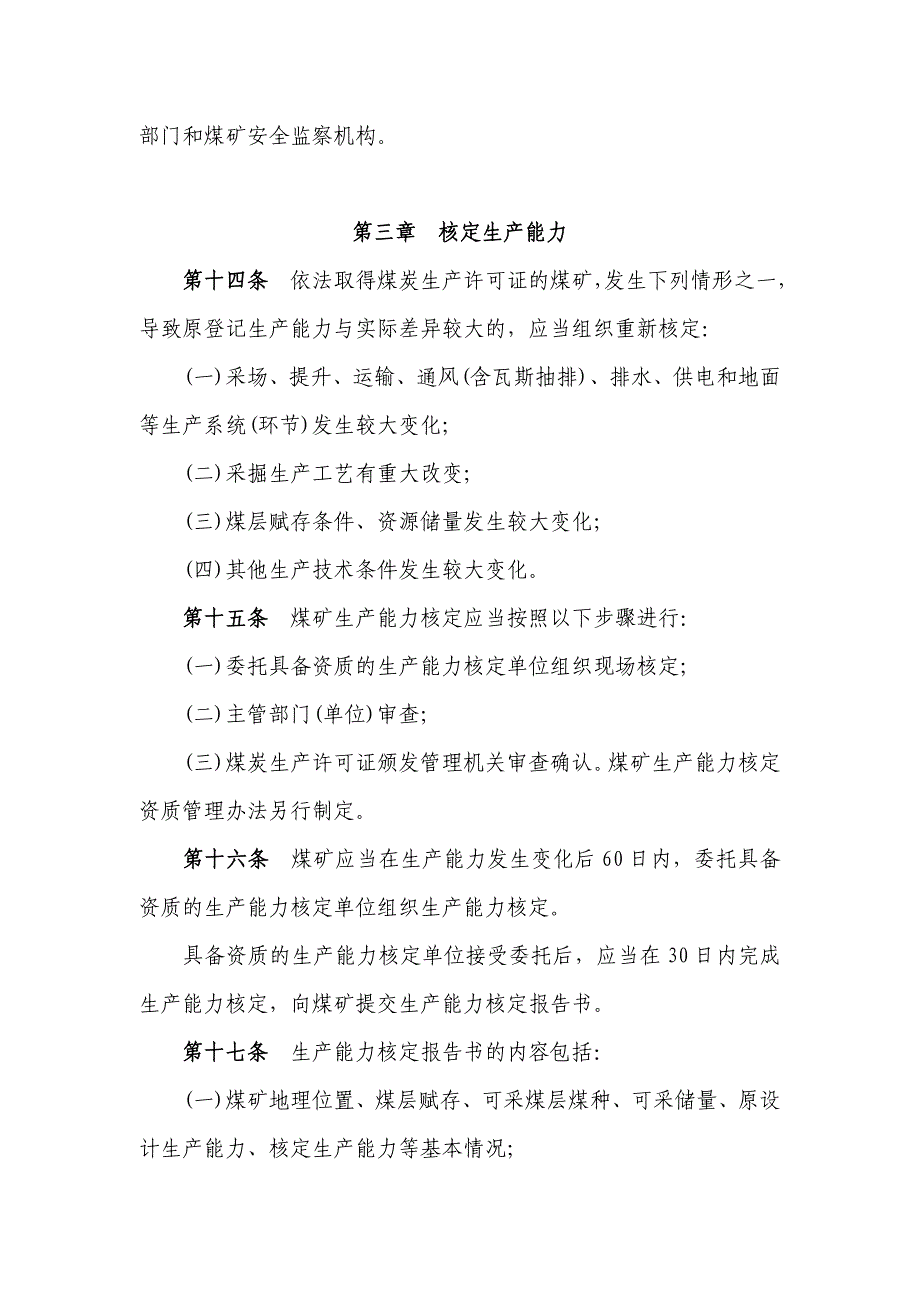 部门和煤矿安全监察机构。
第三章　核定生产能力
第十四条　依法取得煤炭生产许可证的煤矿,发生下列情形之一,
导致原登记生产能力与实际差异较大的，应当组织重新核定：
(一)采场、提升、运输、通风(含瓦斯抽排)、排水、供电和地面
等生产系统(环节)发生较大变化；
(二)采掘生产工艺有重大改变；
(三)煤层赋存条件、资源储量发生较大变化；
(四)其他生产技术条件发生较大变化。
第十五条　煤矿生产能力核定应当按照以下步骤进行：
(一)委托具备资质的生产能力核定单位组织现场核定；
(二)主管部门(单位)审查；
(三)煤炭生产许可证颁发管理机关审查确认。煤矿生产能力核定
资质管理办法另行制定。
第十六条　煤矿应当在生产能力发生变化后60日内，委托具备
资质的生产能力核定单位组织生产能力核定。
具备资质的生产能力核定单位接受委托后，应当在30日内完成
生产能力核定，向煤矿提交生产能力核定报告书。
第十七条　生产能力核定报告书的内容包括：
(一)煤矿地理位置、煤层赋存、可采煤层煤种、可采储量、原设
计生产能力、核定生产能力等基本情况；